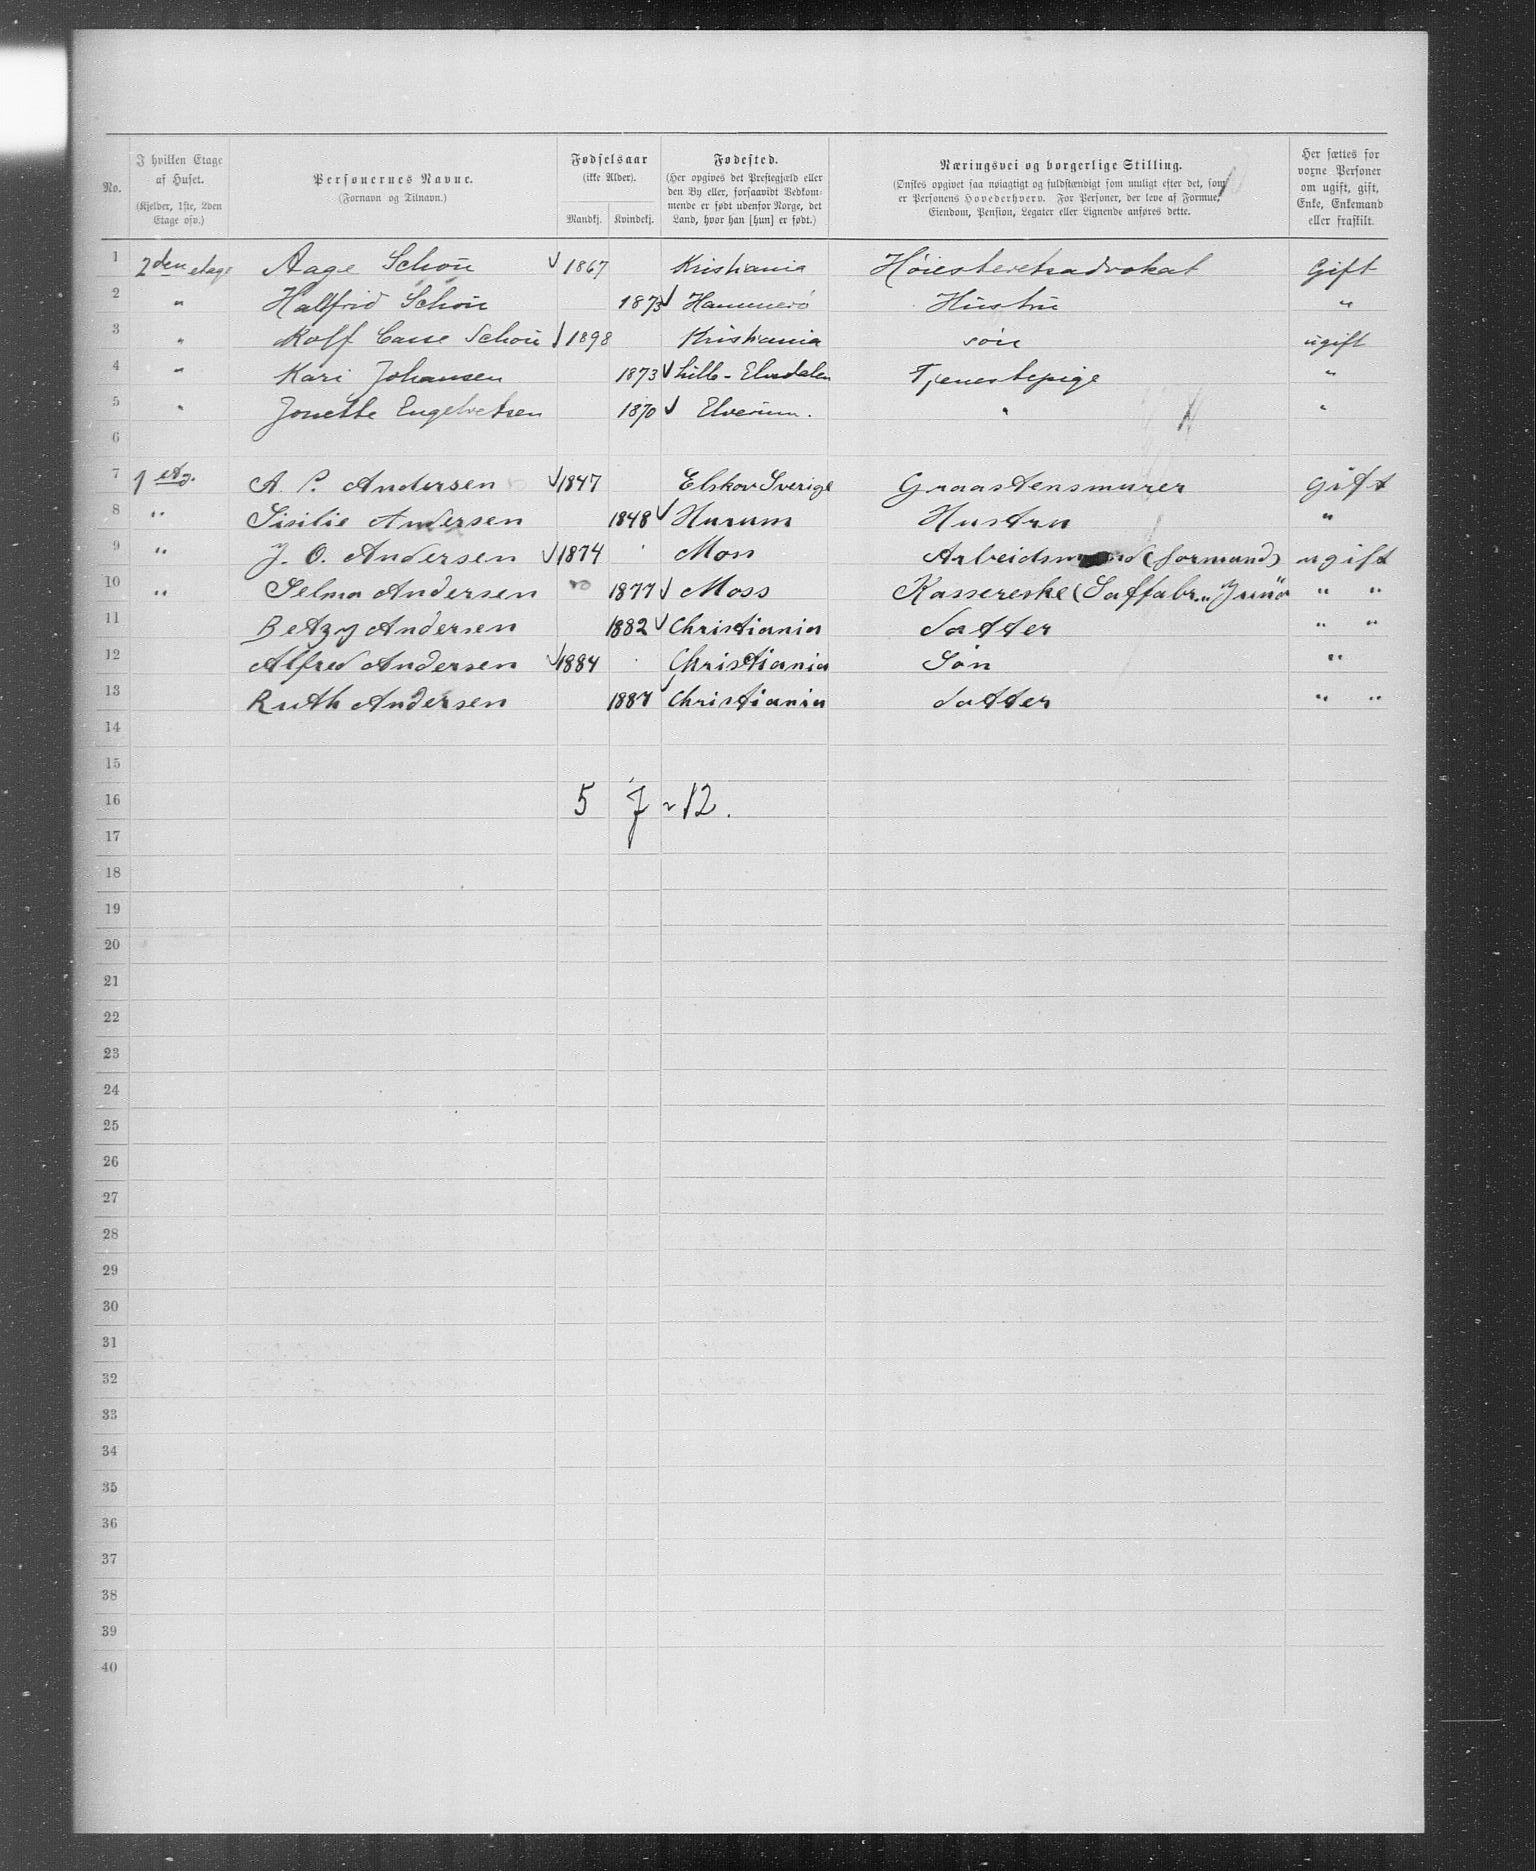 No. | I hvilken Etage af Huset. (Kjelder, 1ste, 2den Etage osv.) | Personernes Navne. (Fornavn og Tilnavn.) | Fødselsaar (ikke Alder). Mandkj. | Kvindekj. | Fødested. (Her opgives det Prestegjæld eller den By eller, forsaavidt Vedkommende er født udenfor Norge, det Land, hvor han [hun] er født.) | Næringsvei og borgerlige Stilling. (Ønskes opgivet saa nøiagtigt og fuldstændigt som muligt efter det, som er Personens Hovederhverv. For Personer, der leve af Formue, Eiendom, Pension, Legater eller Lignende anføres dette. | Her sættes for voxne Personer om ugift, gift, Enke, Enkemand eller fraskilt.
1 2den etage Aage Schou 1867 Kristiania Høiesteretsadvokat Gift
2 " Hallfrid Schou 1873 Hammerø Hustru "
3 " Rolf Schou 1898 Kristiania søn ugift
4 " Kari Johansen 1873 Lille-Elvedalen Tjenestepige "
5 " Jonette Engebretsen 1870 Elverum. " "
6
7 1 etg. A. P. Andersen 1847 Sverige Graastensmurer gift
8 " Sisilie Andersen 1848 Hurum Hustru "
9 " J. O. Andersen 1874 Mon Arbeidsmand (formand) ugift
10 " Selma Andersen 1877 Moss Kassereske (Saftfabr. " " "
11 Betzy Andersen 1882 Christiania datter " "
12 Alfred Andersen 1884 Christiania Søn "
13 Ruth Andersen 1887 Christiania datter " "
14
15
16 5 7 = 12.
17
18
19
20
21
22
23
24
25
26
27
28
29
30
31
32
33
34
35
36
37
38
39
40